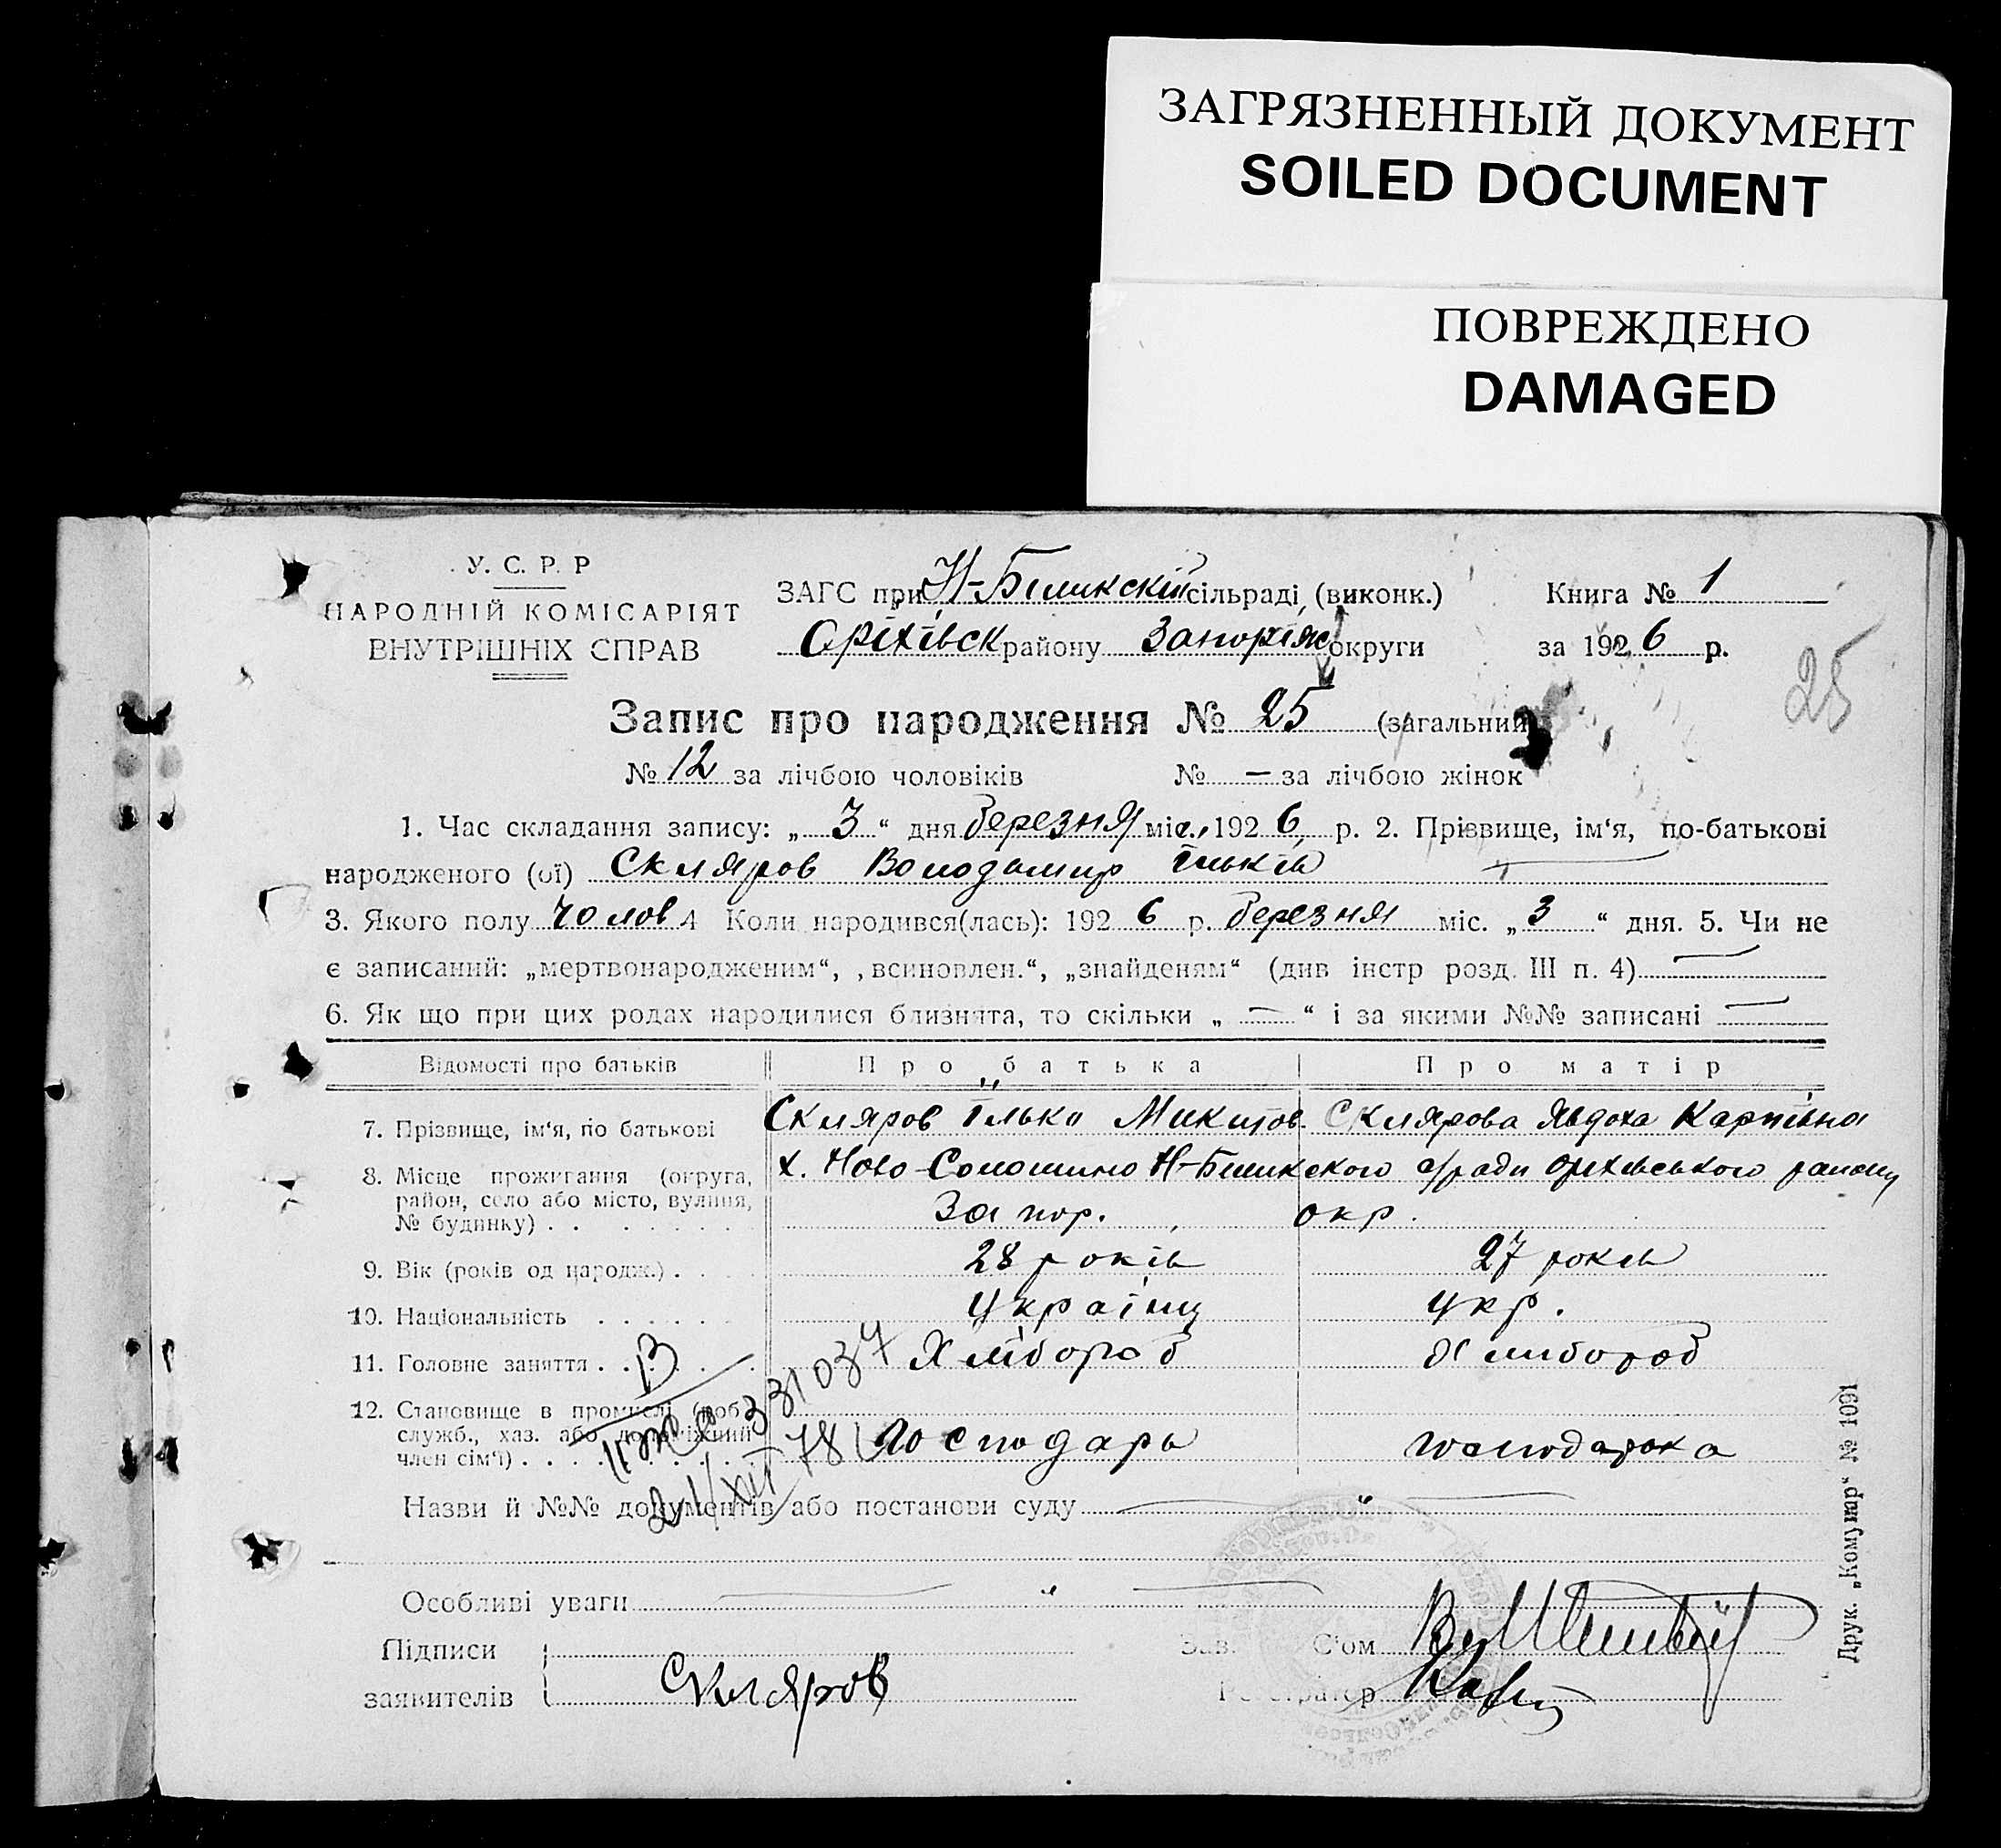 ЗАГРЯЗНЕННЫЙ ДОКУМЕНТ
SOILED DOCUMENT
ПОВРЕЖДЕНО
DAMAGED
У. С. Р. Р
НАРОДНІЙ КОМІСАРІЯТ
ВНУТРІШНІХ СПРАВ
ЗАГС при Н-Біликскій сільраді (виконк.)
Оріхівск району Запоріж округи
Книга № 1
за 1926 р.
25
Запис про народження № 25 (загальний
№ 12 за лічбою чоловіків № — за лічбою жінок
1. Час складання запису: „ 3 “ дня березня міс., 1926 р. 2. Прізвище, ім‘я, по-батькові
народженого (ої) Скляров Володимир Ільків
3. Якого полу чолов 4 Коли народився(лась): 1926 р. березня міс. „ 3 “ дня. 5. Чи не
є записаний: „мертвонародженим“, „всиновлен.“, „знайденям“ (див інстр розд. III п. 4) —
6. Як що при цих родах народилися близнята, то скільки „ — “ і за якими №№ записані —
Відомості про батьків Про батька Про матір
7. Прізвище, ім‘я, по батькові Скляров Ілько Микитов. Склярова Явдоха Карпівна
8. Місце прожигання (округа, район, село або місто, вулиця, № будинку) . . х. Ново-Солошино Н-Біликского с/ради Оріхівського району
Запор. окр.
9. Вік (років од народж.) . 28 років 27 років
10. Національність Україиц укр.
11. Головне заняття . . Хлібороб Хлибороб
12. Становище в промислі (роб. служб., хаз. або допоміжний член сім‘ї) . . Господарь господарка
В
331037
78
Назви й №№ документів або постанови суду — „ —
Особливі уваги — „ —
Підписи
заявителів
Скляров
Зав. С‘ом
Реєстратор
Друк. „Комунар“ № 1091